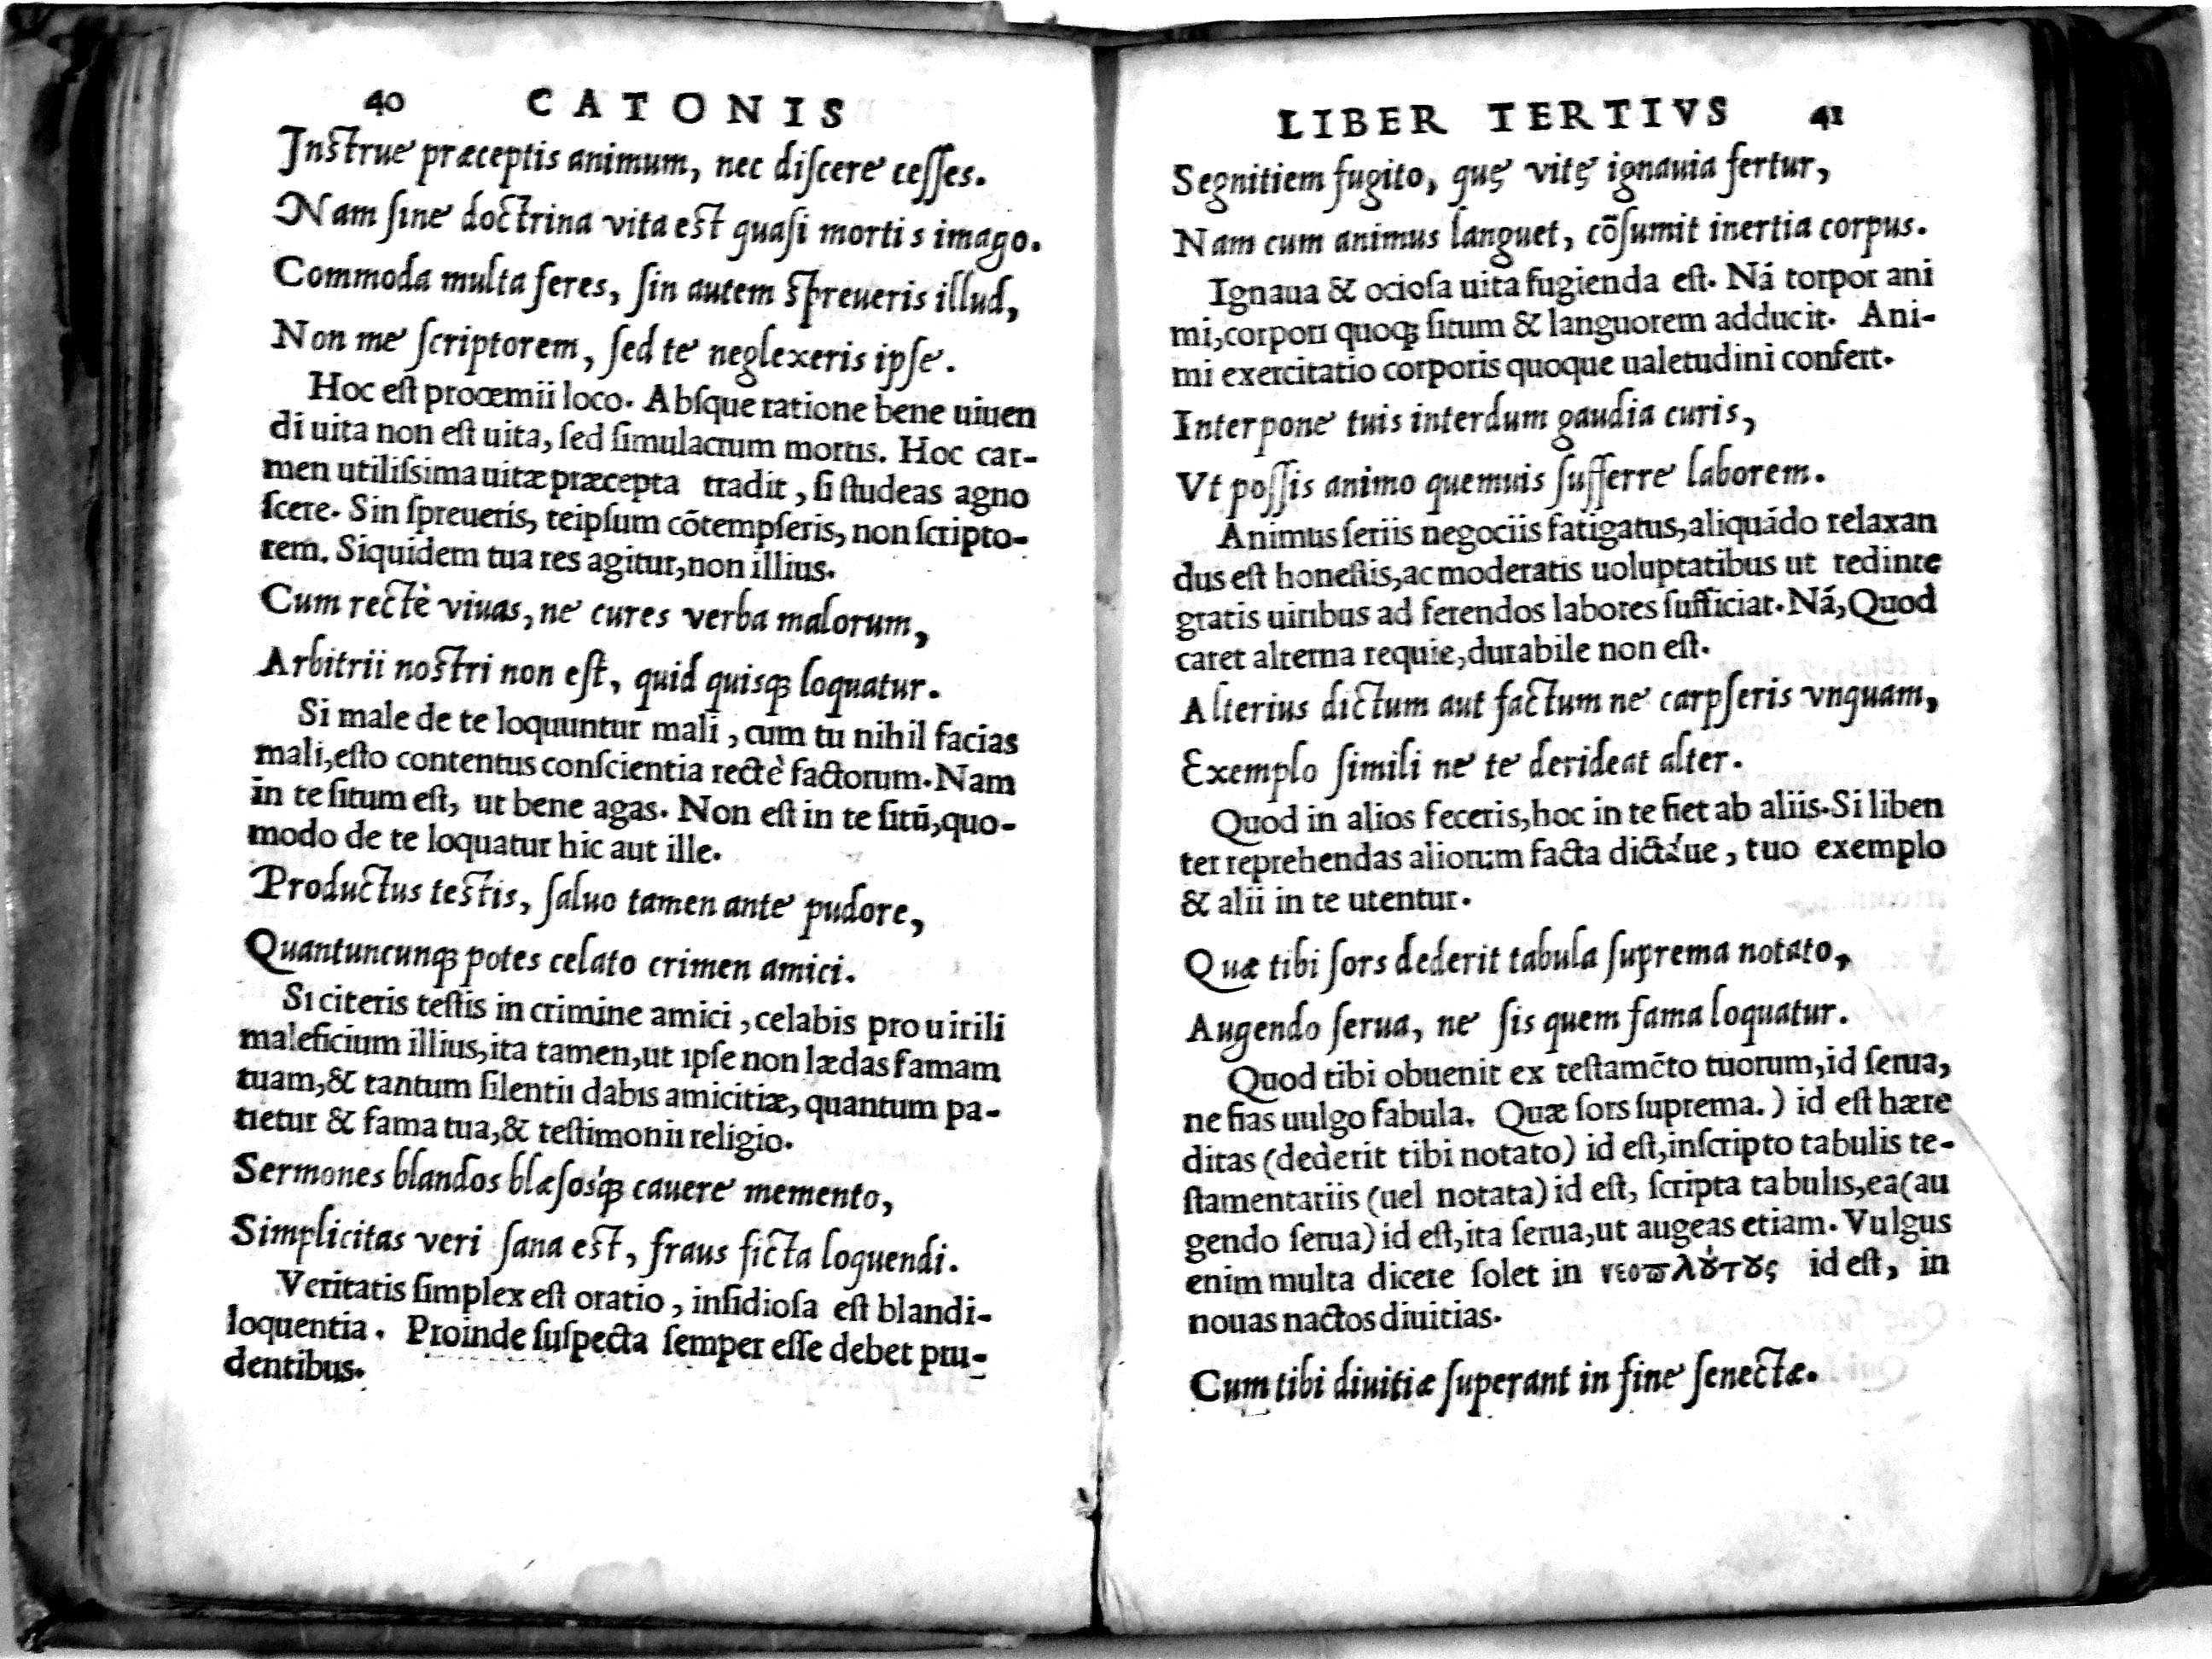 40 CATONIS
Inſtrue præceptis animum, nec diſcere ceſſes.
Nam ſine doctrina vita eſt quaſi morti s imago.
Commoda multa feres, ſin autem ſpreueris illud,
Non me ſcriptorem, ſed te neglexeris ipſe.
Hoc eſt proœmii loco. Abſque ratione bene uiuen
di uita non eſt uita, ſed ſimulacrum mortis. Hoc car-
men utiliſsima uitæ præcepta tradit, ſi ſtudeas agno
ſcere. Sin ſpreueris, teipſum cõtempſeris, non ſcripto-
rem. Siquidem tua res agitur, non illius.
Cum rectè viuas, ne cures verba malorum,
Arbitrii noſtri non eſt, quid quisq; loquatur.
Si male de te loquuntur mali, cum tu nihil facias
mali, eſto contentus conſcientia rectè factorum. Nam
in te ſitum eſt, ut bene agas. Non eſt in te ſitũ, quo-
modo de te loquatur hic aut ille.
Productus teſtis, ſaluo tamen ante pudore,
Quantuncunq; potes celato crimen amici.
Si citeris teſtis in crimine amici, celabis pro uirili
maleficium illius, ita tamen, ut ipſe non lædas famam
tuam, & tantum ſilentii dabis amicitiæ, quantum pa-
tietur & fama tua, & teſtimonii religio.
Sermones blandos blæſosq́; cauere memento,
Simplicitas veri ſana eſt, fraus ficta loquendi.
Veritatis ſimplex eſt oratio, inſidioſa eſt blandi-
loquentia. Proinde ſuſpecta ſemper eſſe debet pru-
dentibus.
LIBER TERTIVS 41
Segnitiem fugito, quę vitę ignauia fertur,
Nam cum animus languet, cõſumit inertia corpus.
Ignaua & ocioſa uita fugienda eſt. Nã torpor ani
mi, corpori quoq; ſitum & languorem adducit. Ani-
mi exercitatio corporis quoque ualetudini confert.
Interpone tuis interdum gaudia curis,
Vt poſſis animo quemuis ſufferre laborem.
Animus ſeriis negociis fatigatus, aliquãdo relaxan
dus eſt honeſtis, ac moderatis uoluptatibus ut redinte
gratis uiribus ad ferendos labores ſufficiat. Nã, Quod
caret alterna requie, durabile non eſt.
Alterius dictum aut factum ne carpſeris vnquam,
Exemplo ſimili ne te derideat alter.
Quod in alios feceris, hoc in te fiet ab aliis. Si liben
ter reprehendas aliorum facta dictáue, tuo exemplo
& alii in te utentur.
Quæ tibi ſors dederit tabula ſuprema notato,
Augendo ſerua, ne ſis quem fama loquatur.
Quod tibi obuenit ex teſtamẽto tuorum, id ſerua,
ne fias uulgo fabula. Quæ ſors ſuprema.) id eſt hære
ditas (dederit tibi notato) id eſt, inſcripto tabulis te-
ſtamentariis (uel notata) id eſt, ſcripta tabulis, ea (au
gendo ſerua) id eſt, ita ſerua, ut augeas etiam. Vulgus
enim multa dicere ſolet in νεοπλούτους id eſt, in
nouas nactos diuitias.
Cum tibi diuitiæ ſuperant in fine ſenectæ.